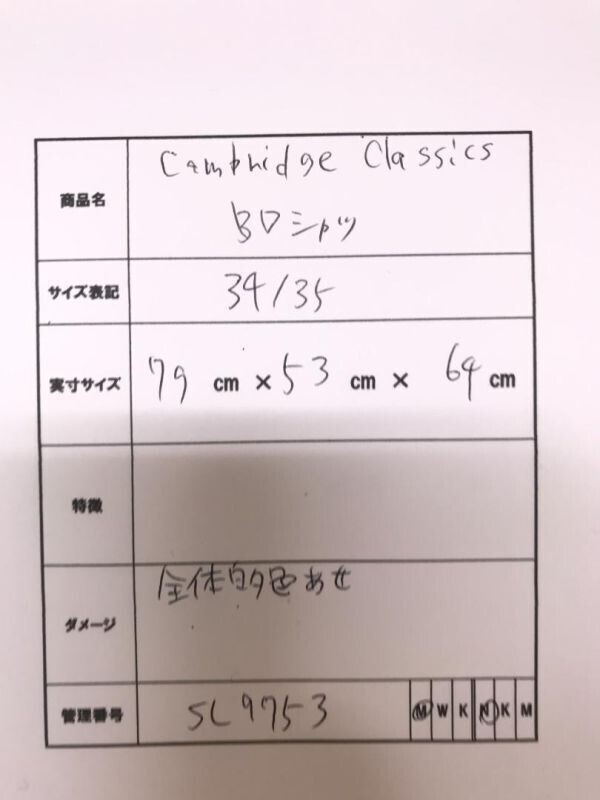 商品名 Cambridge Classics
BDシャツ
サイズ表記 34/35
実寸サイズ 79 cm × 53 cm × 64 cm
特徴
ダメージ 全体的色あせ
管理番号 SL9753 M W K N K M